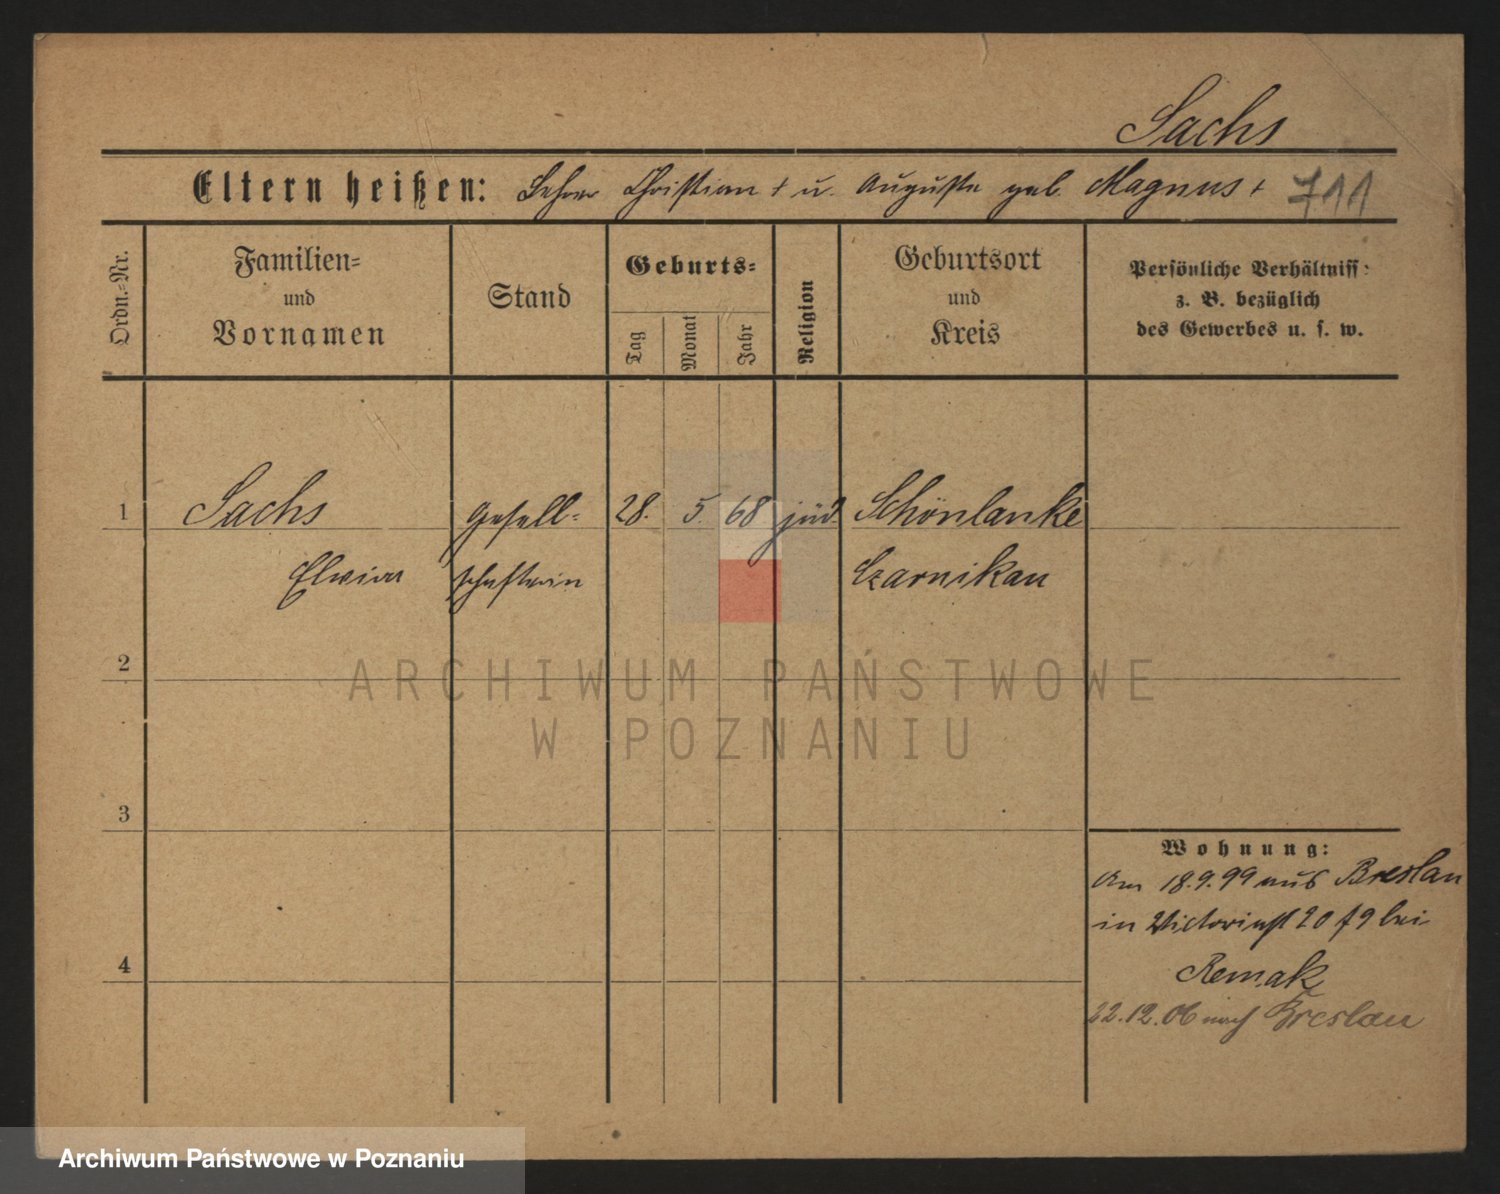 Sachs
Eltern heißen: Lehrer Christian † u. Auguste geb. Magnus † 711
Ordn.=Nr.
Familien=
und
Vornamen
Stand
Geburts=
Tag
Monat
Jahr
Religion
Geburtsort
und
Kreis
Persönliche Verhältniss:
z. B. bezüglich
des Gewerbes u. s. w.
1 Sachs Gesell= 28. 5. 68 jüd. Schönlanke
schafterin Czarnikau
2
ARCHIWUM PAŃSTWOWE
W POZNANIU
3
Wohnung:
Am 18.9.99 aus Breslau
in Victoriast 20 bei
4
Remak
22.12.06 nach Breslau
Archiwum Państwowe w Poznaniu